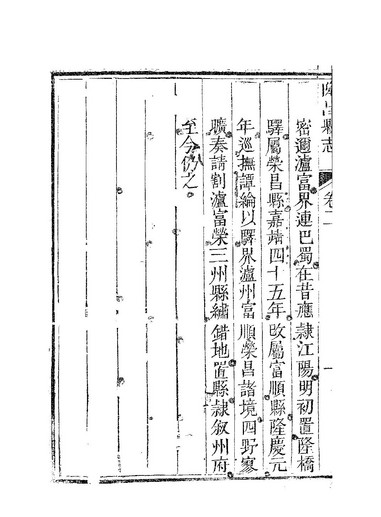 隆昌縣志
卷二
密邇瀘富界連巴蜀在昔應隸江陽明初置隆橋
驛屬榮昌縣嘉靖四十五年改屬富順縣隆慶元
年巡撫譚綸以驛界瀘州富順榮昌諸境四野寥
曠奏請割瀘富榮三州縣繡錯地置縣隸叙州府
至今仍之